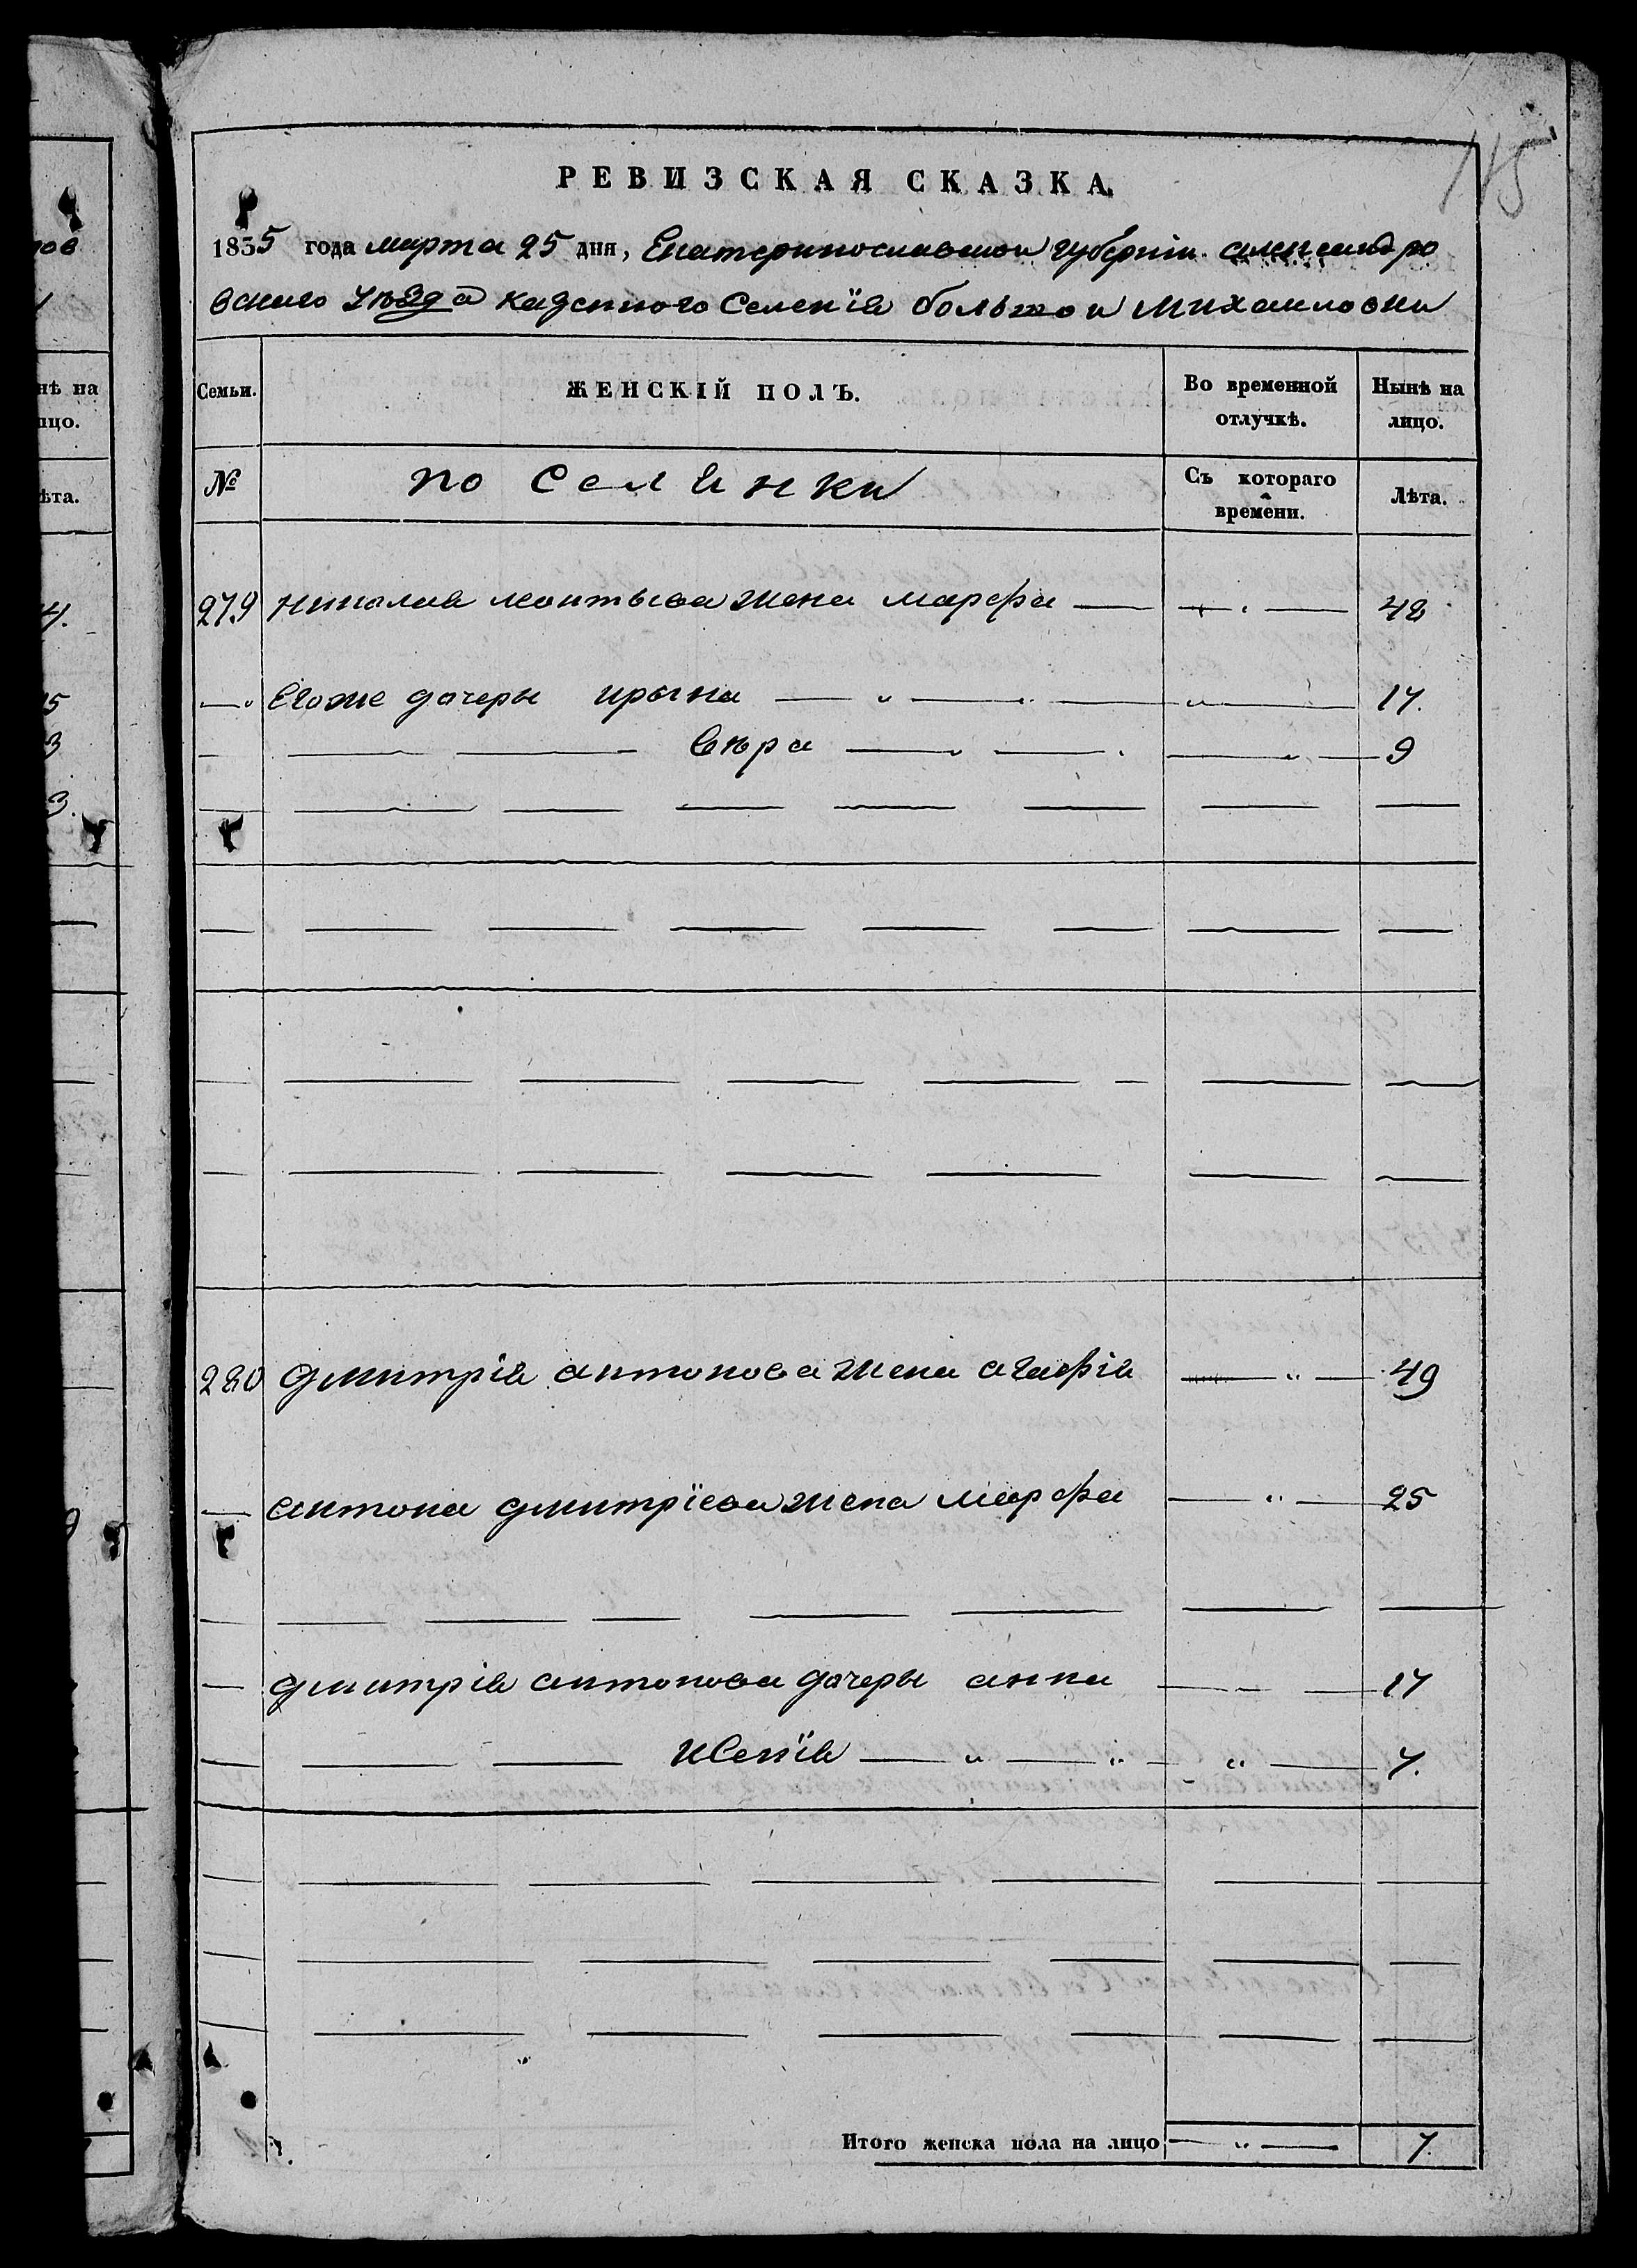 115
РЕВИЗСКАЯ СКАЗКА.
1835 года марта 25 дня, Екатеринославской губерніи александро
вского уѣзда казенного Селенїя большои михаиловки
Семьи. ЖЕНСКІЙ ПОЛЪ. Во временной отлучкѣ. Нынѣ на лицо.
№ поселянки Съ котораго времени. Лѣта.
279 николая леонтьева жена марфа — " — 48
— " Егоже дочеры ирына — " — " — " — 17.
— — — вѣра — " — . — " — 9
280 дмитрія антонова жена агафія — " — 49
— антона дмитрїева жена марфа — " — 25
— дмитрія антонова дочеры анна — — — 17
— — — ксенїя — " — " — " — 7.
Итого женска пола на лицо — " — 7.
нѣ на
лцо.
ѣта.
4.
5
3
3.